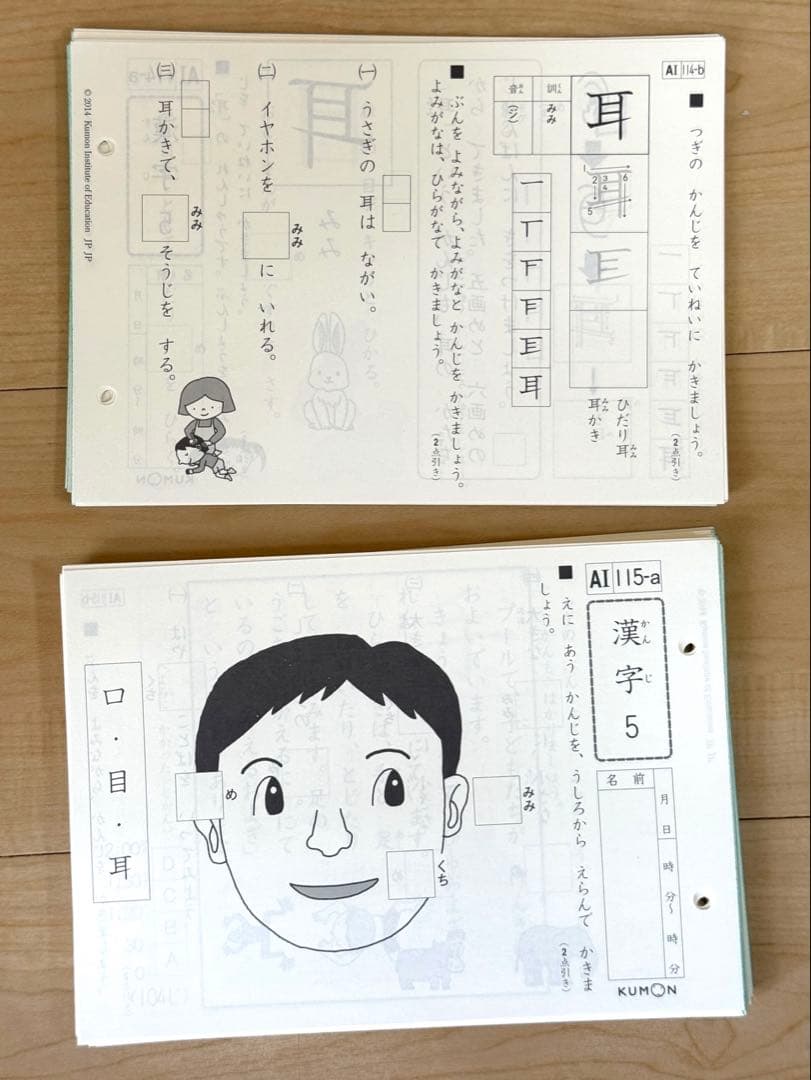 AI 114-b
■ つぎの かんじを ていねいに かきましょう。
(2点引き)
耳
訓 くん みみ
音 おん (ジ)
1 2 3 4 5 6
ひだり耳 みみ
耳かき みみ
一 丅 F 耳
■ ぶんを よみながら、よみがなと かんじを かきましょう。
よみがなは、ひらがなで かきましょう。
(2点引き)
(一) うさぎの 耳は ながい。
(二) イヤホンを みみ に いれる。
(三) 耳かきで、 みみ そうじを する。
© 2014 Kumon Institute of Education JP JP
AI 115-a
漢字 5
かん じ
名前
月 日
時 分〜 時 分
KUMON
■ えに あう かんじを、うしろから えらんで かきま
しょう。
(2点引き)
みみ
くち
め
口・目・耳